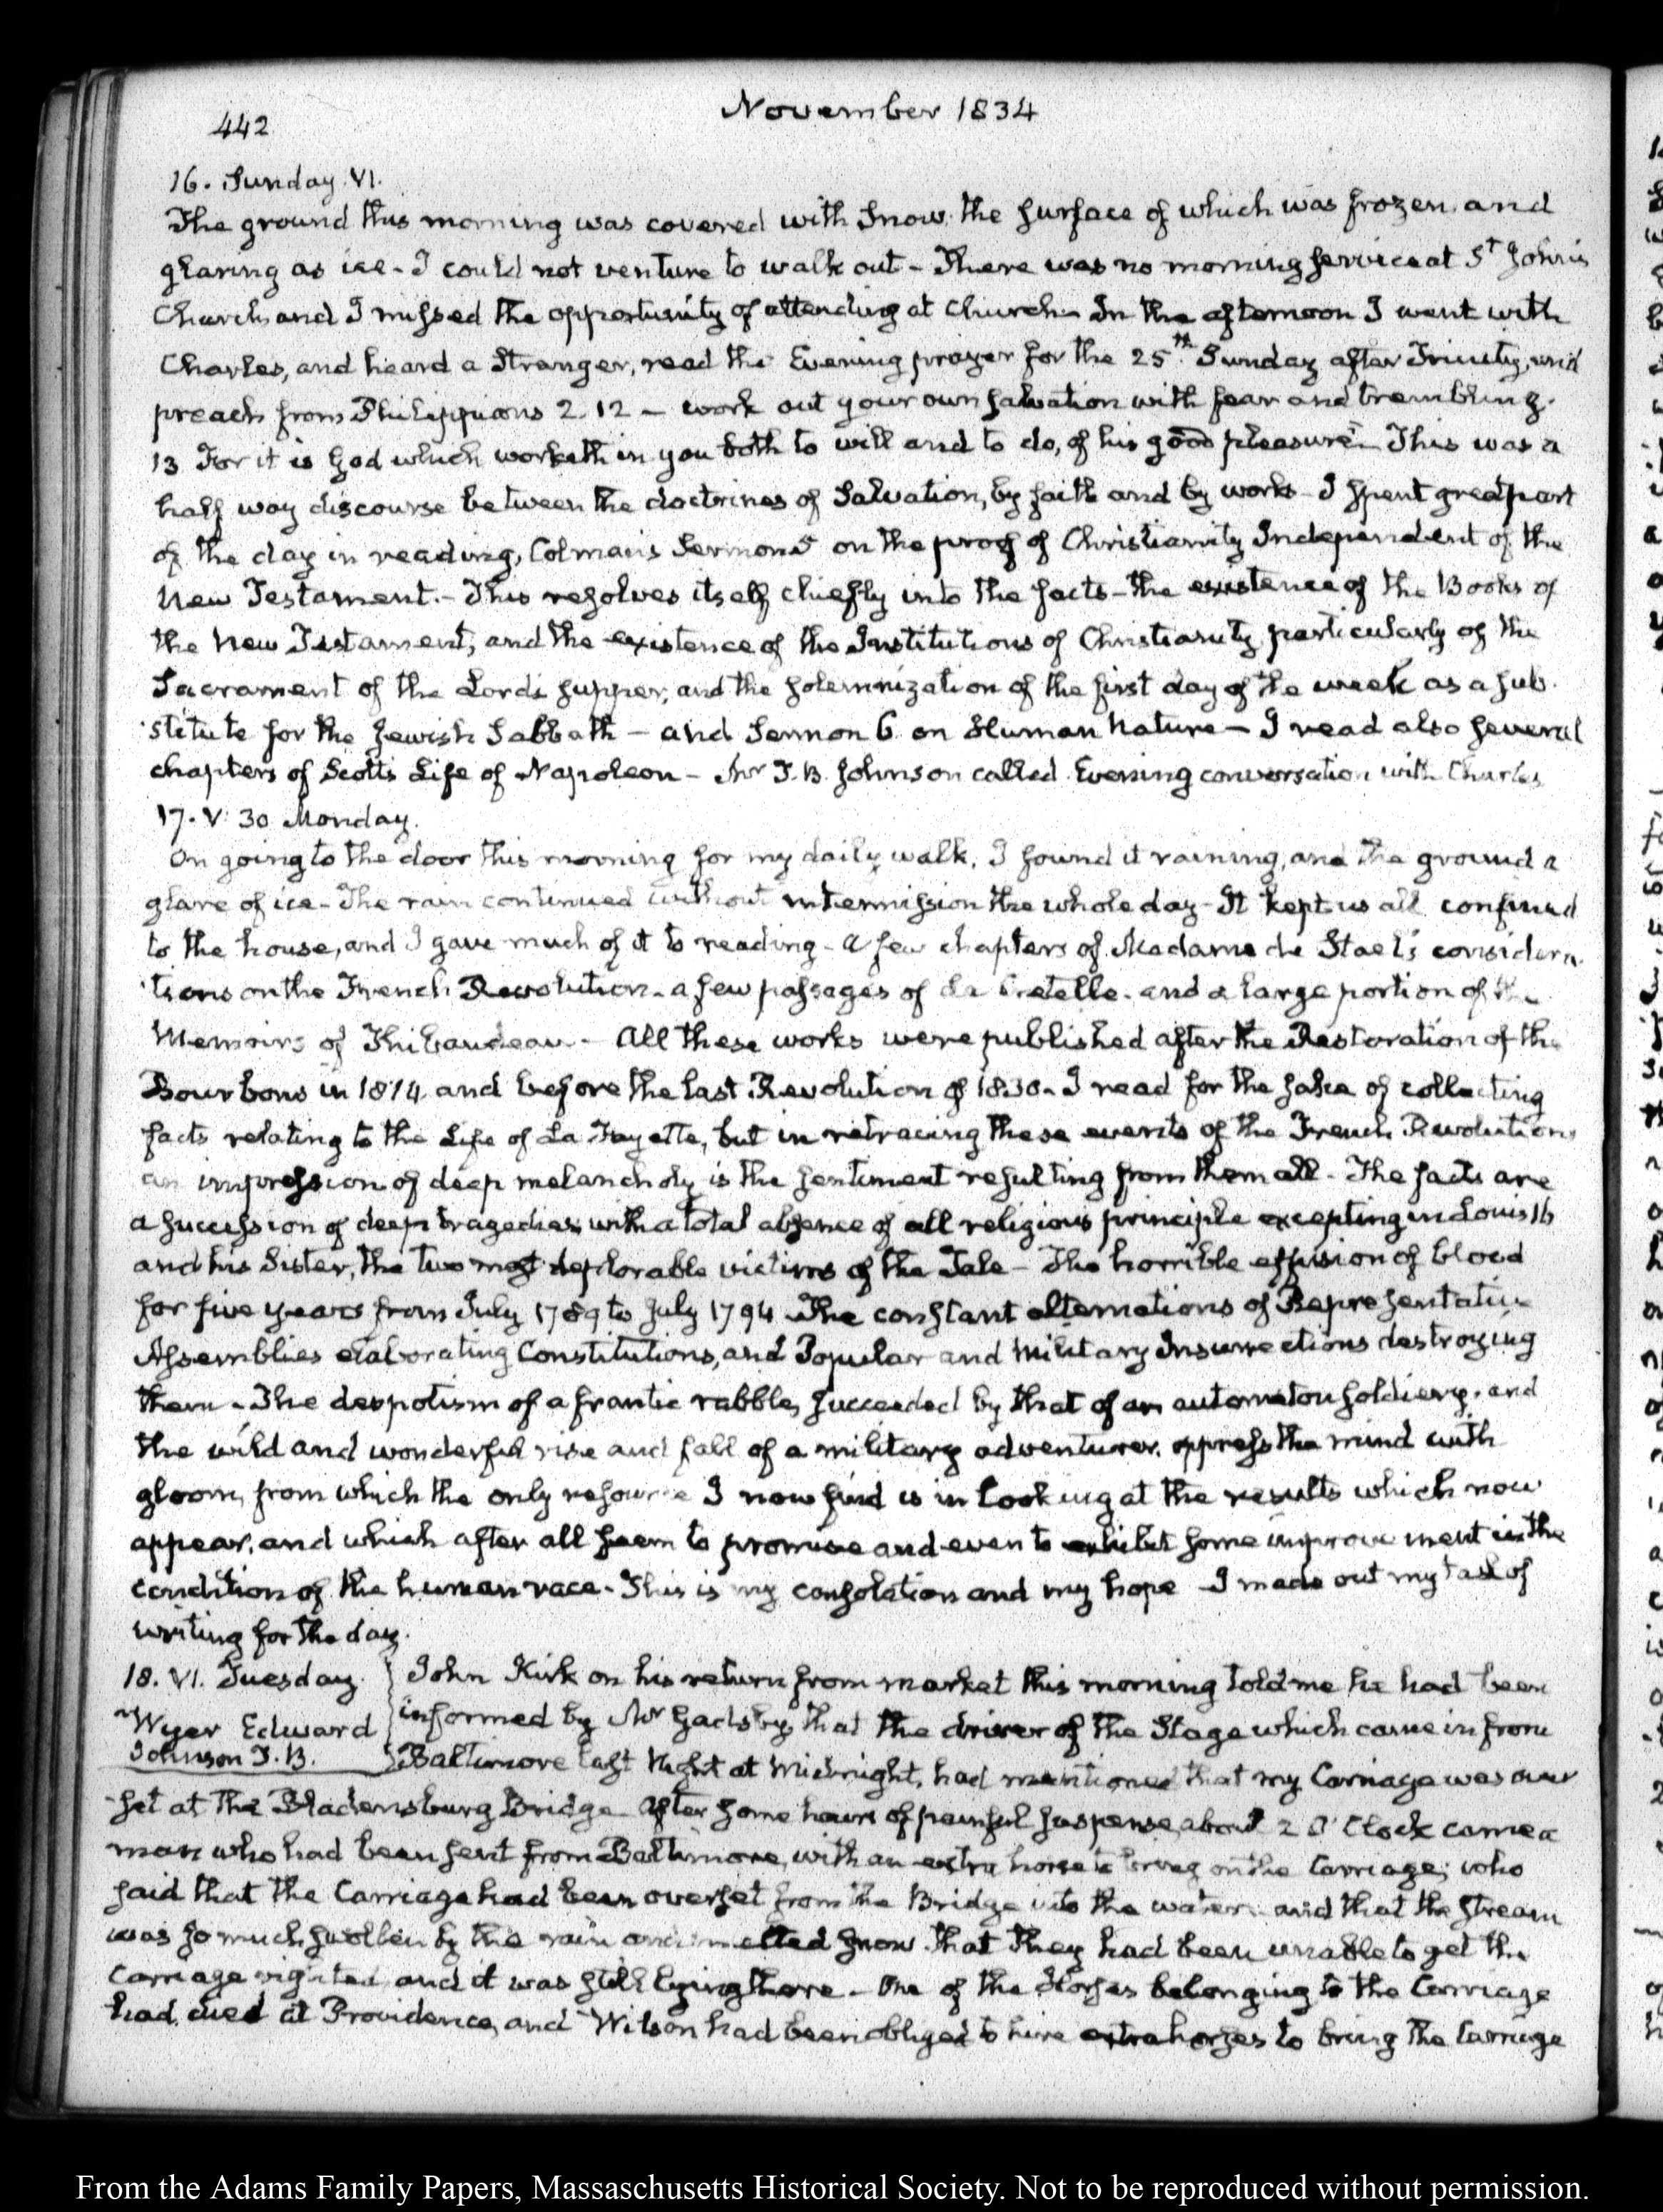 442
November 1834
16. Sunday. VI.
The ground this morning was covered with Snow, the surface of which was frozen, and
glaring as ice - I could not venture to walk out - There was no morning service at St. John's
Church, and I missed the opportunity of attending at Church - In the afternoon I went with
Charles, and heard a Stranger, read the Evening prayer for the 25th. Sunday after Trinity, and
preach from Philippians 2. 12 - work out your own salvation with fear and trembling.
13 For it is God which worketh in you both to will and to do, of his good pleasure - This was a
half way discourse between the doctrines of Salvation, by faith and by works - I spent great part
of the day in reading, Colman's Sermons on the proof of Christianity Independent of the
New Testament. - This resolves itself chiefly into the facts - the existence of the Books of
the New Testament, and the existence of the Institutions of Christianity, particularly of the
Sacrament of the Lord's supper, and the solemnization of the first day of the week as a sub-
stitute for the Jewish Sabbath - and Sermon 6 on Human Nature - I read also several
chapters of Scott's Life of Napoleon - Mr J. B. Johnson called. Evening conversation with Charles
17. V: 30 Monday.
On going to the door this morning for my daily walk, I found it raining, and the ground a
glare of ice - The rain continued without intermission the whole day - It kept us all confined
to the house, and I gave much of it to reading - a few chapters of Madame de Stael's considera-
tions on the French Revolution - a few passages of La Cretelle - and a large portion of the
Memoirs of Thibaudeau - All these works were published after the Restoration of the
Bourbons in 1814 and before the last Revolution of 1830 - I read for the sake of collecting
facts relating to the Life of La Fayette, but in retracing these events of the French Revolution,
an impression of deep melancholy is the sentiment resulting from them all - The facts are
a succession of deep tragedies with a total absence of all religious principle excepting in Louis 16
and his Sister, the two most deplorable victims of the Tale - The horrible effusion of blood
for five years from July 1789 to July 1794 The constant alternations of Representative
Assemblies elaborating Constitutions, and Popular and Military Insurrections destroying
them - The despotism of a frantic rabble, succeeded by that of an automaton soldiery, and
the wild and wonderful rise and fall of a military adventurer, oppress the mind with
gloom, from which the only resource I now find is in looking at the results which now
appear, and which after all seem to promise and even to exhibit some improvement in the
condition of the human race - This is my consolation and my hope - I made out my task of
writing for the day.
18. VI. Tuesday.
Wyer Edward
Johnson J. B.
John Kirk on his return from market this morning told me he had been
informed by Mr Gadsby, that the driver of the Stage which came in from
Baltimore last Night at Midnight, had mentioned that my Carriage was over-
set at the Bladensburg Bridge. After some hours of painful suspense, about 2 O'Clock came a
man who had been sent from Baltimore, with an extra horse to bring on the Carriage; who
said that the Carriage had been overset from the Bridge into the water, and that the stream
was so much swollen by the rain and melted snow that they had been unable to get the
Carriage righted and it was still lying there - One of the Horses belonging to the Carriage
had died at Providence, and Wilson had been obliged to hire extra horses to bring the Carriage
From the Adams Family Papers, Massachusetts Historical Society. Not to be reproduced without permission.